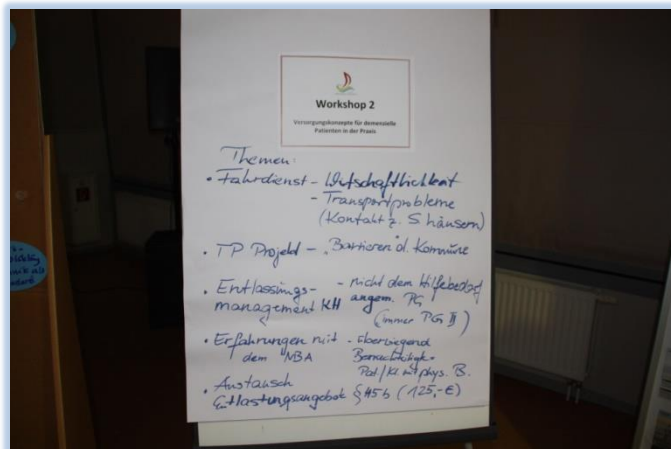 Workshop 2
Versorgungskonzepte für demenzielle
Patienten in der Praxis
Themen:
• Fahrdienst - Wirtschaftlichkeit
- Transportprobleme
(Kontakt z. S häusern)
• TP Projekt - Barrieren d. Kommune
• Entlassungs- - nicht dem Hilfebedarf
management KH angem. PG
(immer PG II)
• Erfahrungen mit - überwiegend
dem NBA
Pat/Kl. mit phys. B.
• Austausch
Entlastungsangebote § 45b (125,-€)